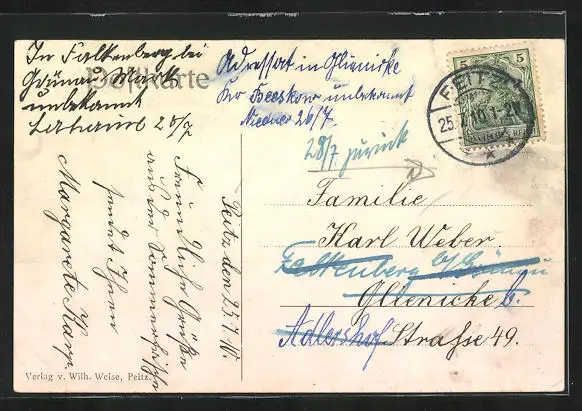 In Falkenberg bei
Grünau Mark
unbekannt
28/7
Postkarte
Adressat in Glienicke
Kr Beeskow unbekannt
26/7.
28/7 zurück
5 5
PEITZ
25.7.10. 1-2N
Familie
Karl Weber.
Falkenberg b/Grünau
Glienicke b.
Adlershof Straße 49.
Peitz den 25.7.10
Freundliche Grüße
aus der Sommerfrische
sendet Ihnen
Margarete
Verlag v. Wilh. Weise, Peitz.